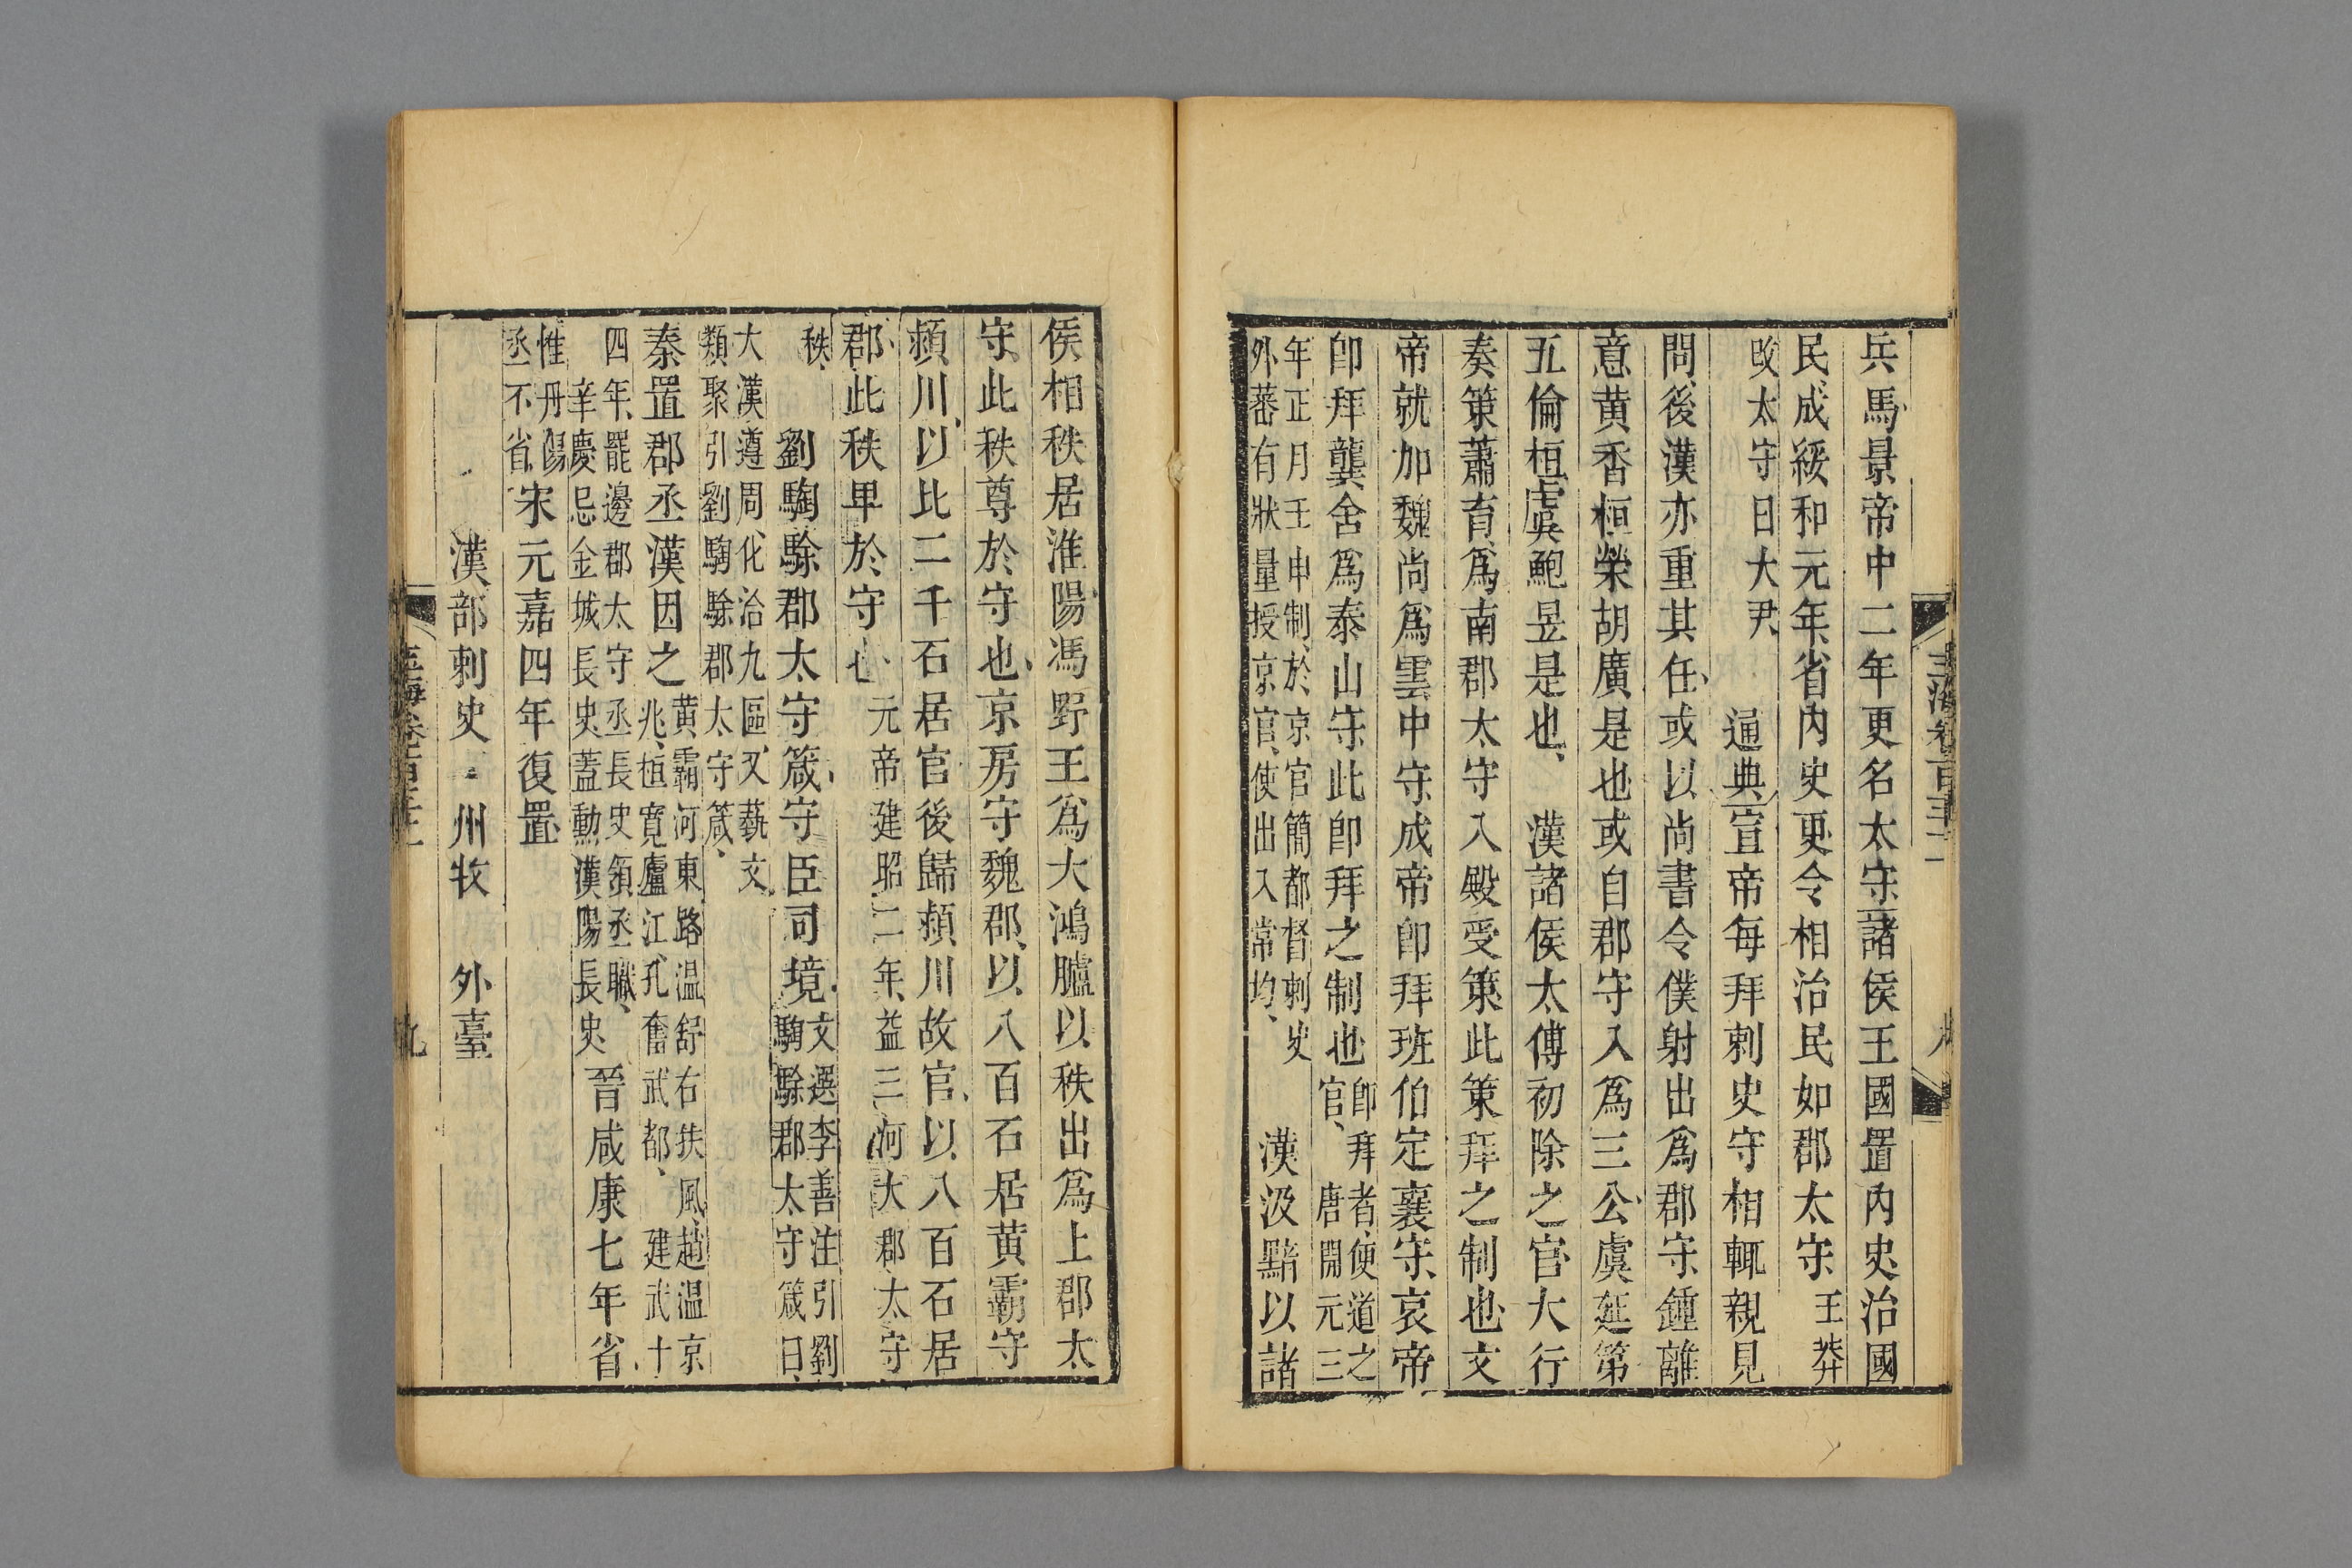 兵馬景帝中二年更名太守諸侯王國置內史治國
民成綏和元年省內史更令相治民如郡太守王莽
改太守曰大尹通典宣帝每拜刺史守相輒親見
問後漢亦重其任或以尚書令僕射出爲郡守鍾離
意黄香桓榮胡廣是也或自郡守入爲三公虞延第
五倫桓虞鮑昱是也漢諸侯太傅初除之官大行
奏策蕭育爲南郡太守入殿受策此策拜之制也文
帝就加魏尚爲雲中守成帝卽拜班伯定襄守哀帝
卽拜龔舍爲泰山守此卽拜之制也卽拜者便道之
官唐開元三
年正月壬申制於京官簡都督刺史
外蕃有狀量授京官使出入常均
漢汲黯以諸
侯相秩居淮陽馮野王爲大鴻臚以秩出爲上郡太
守此秩尊於守也京房守魏郡以八百石居黄霸守
潁川以比二千石居官後歸潁川故官以八百石居
郡此秩卑於守也元帝建昭二年益三河大郡太守
秩劉騊駼郡太守箴守臣司境文選李善注引劉
騊駼郡太守箴曰
大漢遵周化洽九區又藝文
類聚引劉騊駼郡太守箴
秦置郡丞漢因之黄霸河東路温舒右扶風趙温京
兆桓寬廬江孔奮武都建武十
四年罷邊郡太守丞長史領丞職
辛慶忌金城長史蓋勳漢陽長史
晉咸康七年省
惟丹陽
丞不省
宋元嘉四年復置
漢部刺史 州牧 外臺